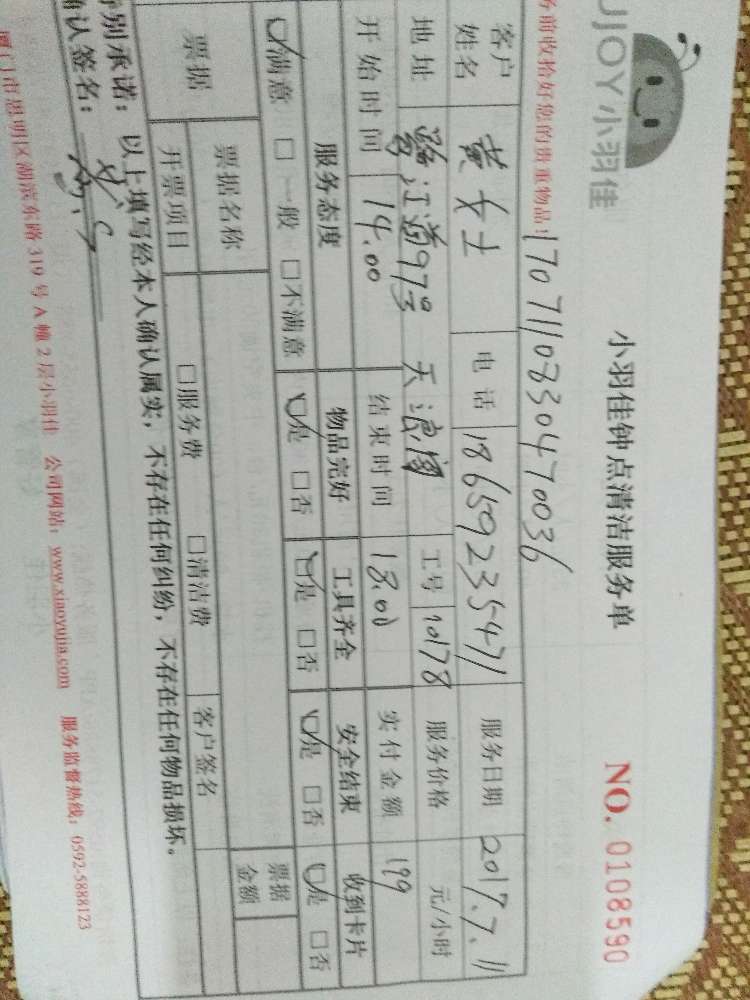 UJOY小羽佳
小羽佳钟点清洁服务单
NO. 0108590
务前收拾好您的贵重物品:
1707110330470036
客户姓名 黄女士 电话 18659235471 服务日期 2017.7.11
地址 鹭江道97号 天 工号 10178 服务价格 元/小时
开始时间 14.00 结束时间 18.00 实付金额 199
服务态度 物品完好 工具齐全 安全结束 收到卡片
满意 □一般 □不满意 是 □否 是 □否 是 □否 是 □否
票据 票据名称 票据金额
开票项目 □服务费 □清洁费 客户签名
别承诺:以上填写经本人确认属实,不存在任何纠纷,不存在任何物品损坏。
认签名:
门市思明区湖滨东路319号A幢2层小羽佳 公司网站:www.xiaoyujia.com 服务监督热线:0592-5888123